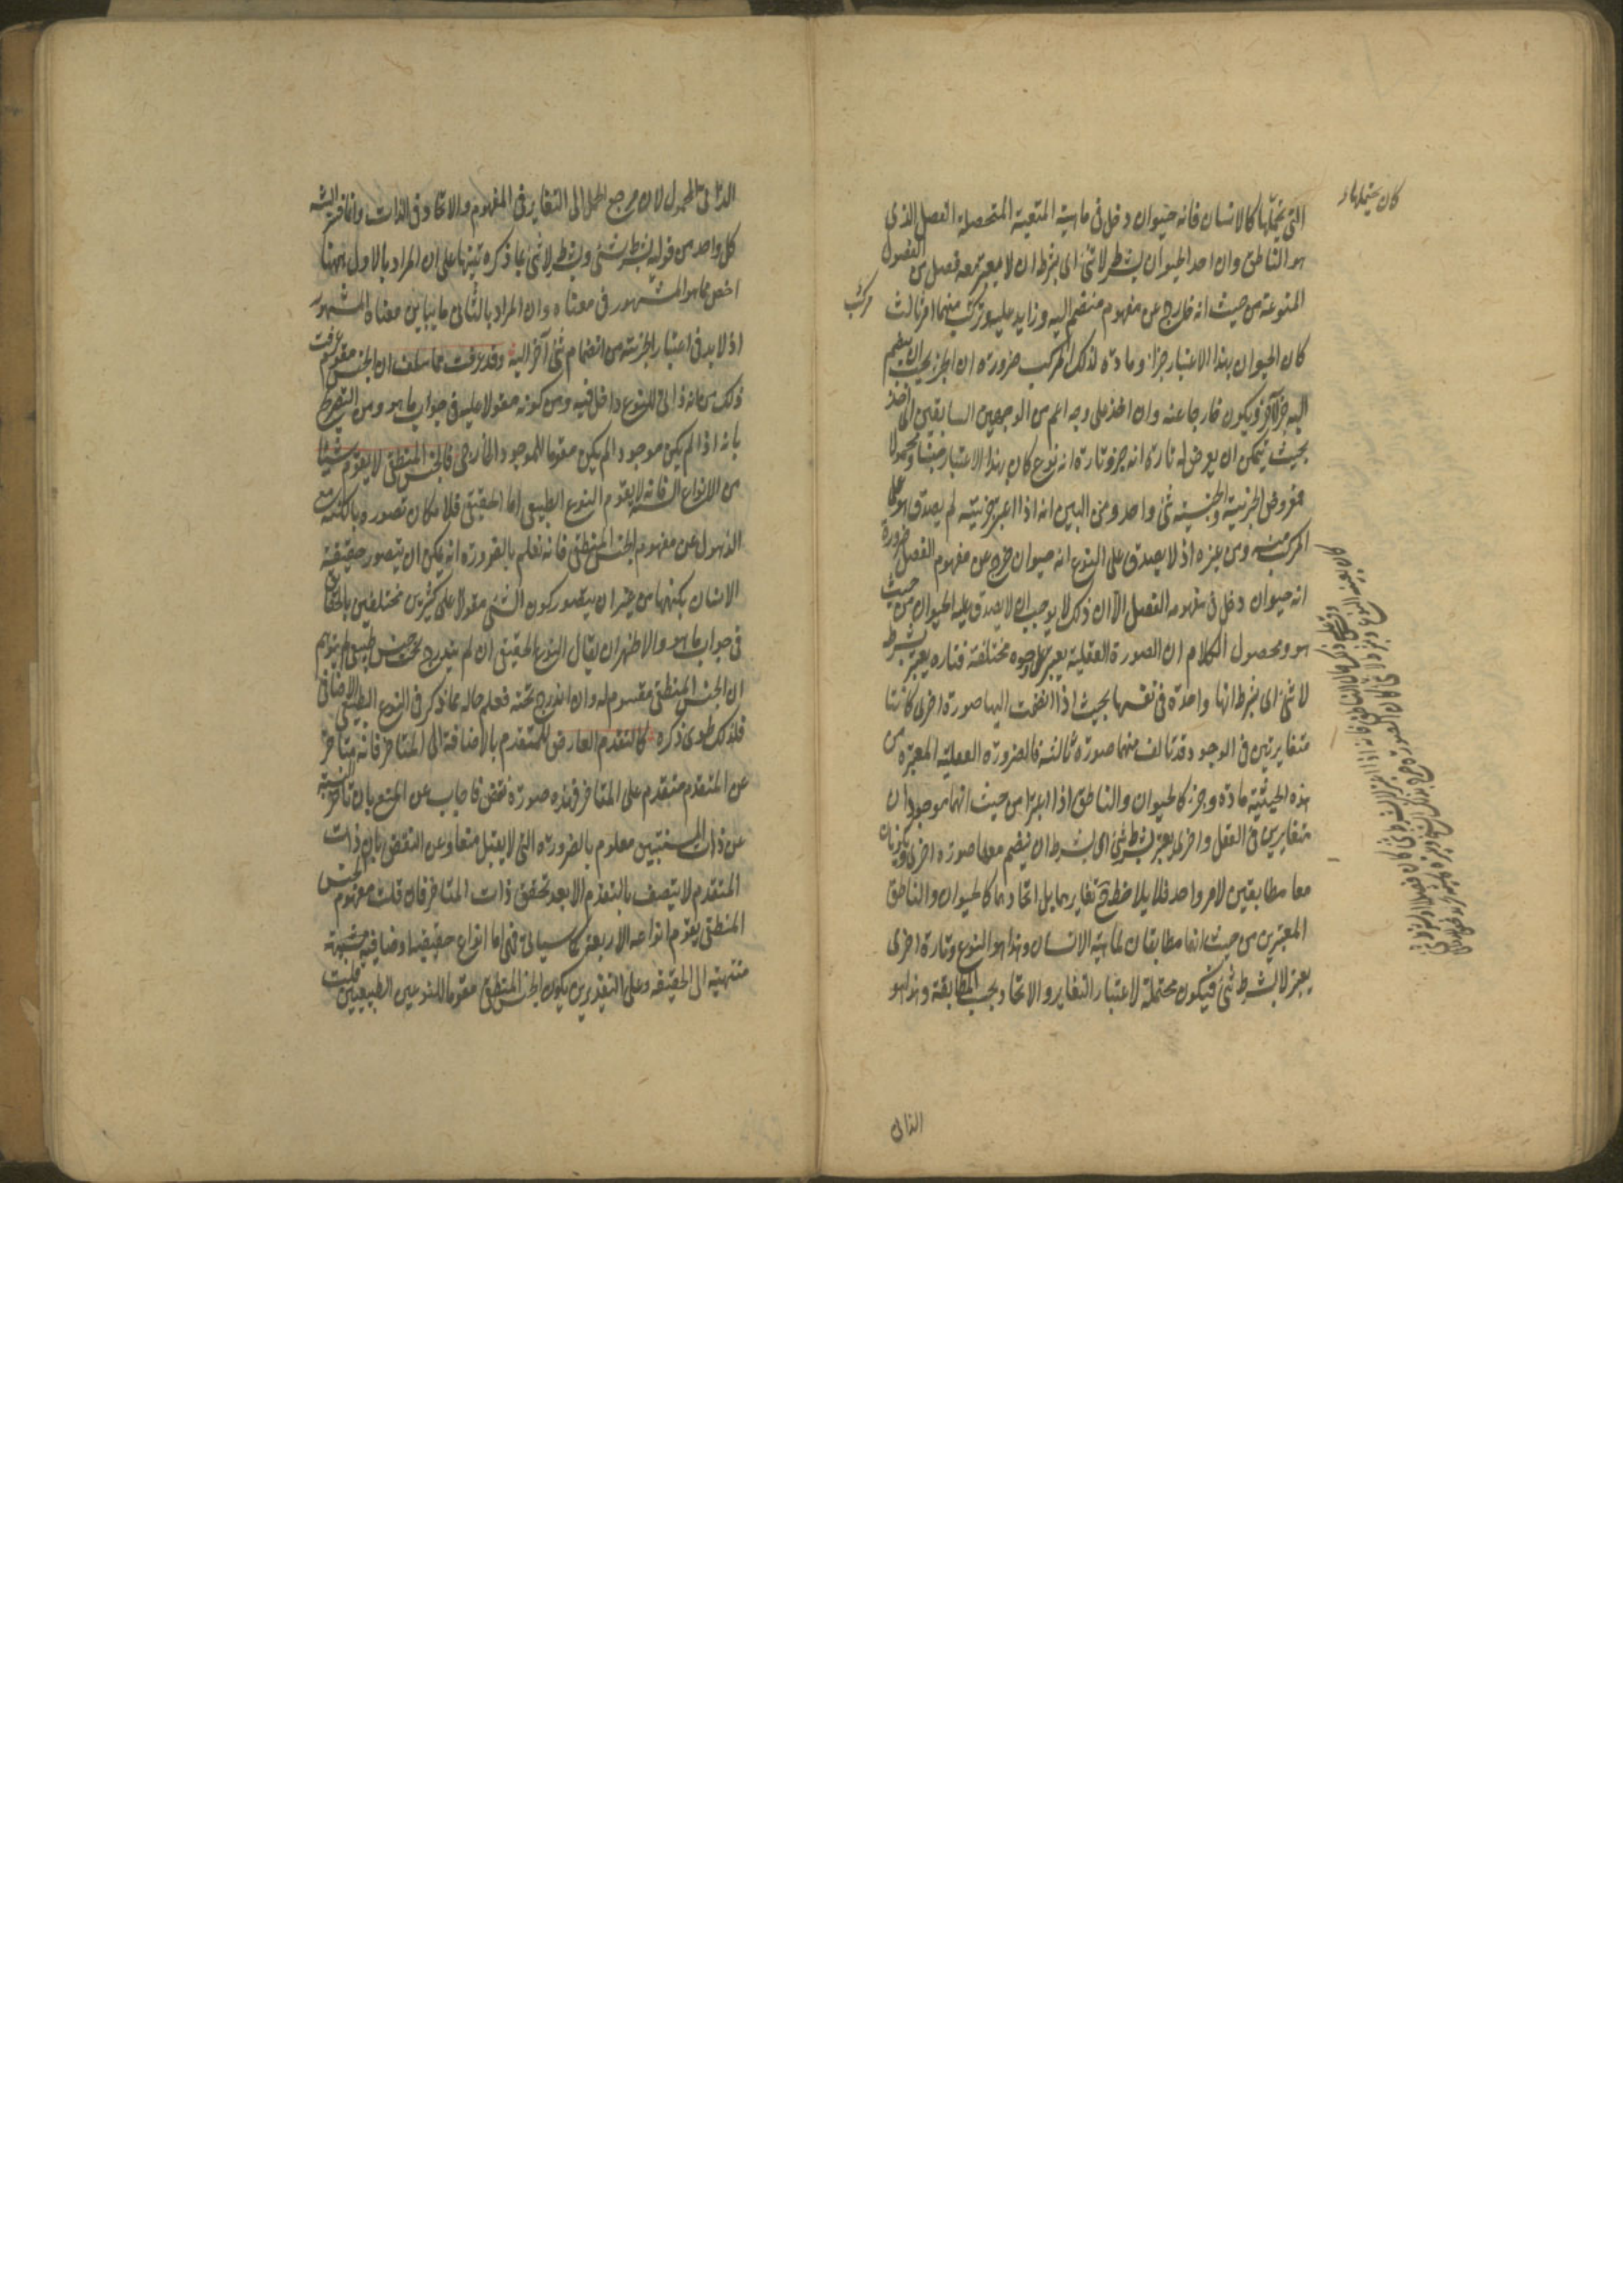 كان يحتملها و
التى يحملها كالانسان فانه حيوان دخل فى ماهيته المتعينة المتحصلة الفصل الذى
هو الناطق وان اخذ الحيوان بشرط لا شئ اى بشرط ان لا يعتبر معه فصل من الفصول
المنوعة من حيث انه خارج عن مفهوم منضم اليه وزايد عليه وتركب منهما امر ثالث
مركب
كان الحيوان بهذا الاعتبار جزءا ومادة لذلك المركب ضرورة ان الجزء يجب ان ينضم
اليه جزء آخر ويكون خارجا عنه وان اخذ على وجه اعم من الوجهين السابقين اى اخذ
بحيث يتمكن ان يعرض له تارة انه جزء وتارة انه نوع كان بهذا الاعتبار جنسا ومحمولا
فمعروض الجزئية والجنسية شئ واحد ومن البين انه اذا اعتبر جزئيته لم يصدق هو على
المركب منه ومن غيره اذ لا يصدق على النوع انه حيوان خرج عن مفهوم الفصل ضرورة
انه حيوان دخل فى مفهومه الفصل الا ان ذلك لا يوجب ان لا يصدق عليه الحيوان من حيث
هو ومحصول الكلام ان الصورة العقلية يعتبر على وجوه مختلفة فتاره يعتبر بشرط
لا شئ اى بشرط انها واحدة فى نفسها بحيث اذا انضمت اليها صورة اخرى كانتا
متغايرتين فى الوجود وقد تالف منهما صورة ثالثة فالصورة العقلية المعتبره من
هذه الحيثية مادة وجزء كالحيوان والناطق اذا اعتبرا من حيث انهما موجودان
متغايرين فى العقل واخرى يعتبر بشرط شئ اى بشرط ان ينضم معها صورة اخرى ويكونان
معا مطابقين لامر واحد فلا يلاحظ ح تغايرهما بل اتحادهما كالحيوان والناطق
المعتبرين من حيث انهما مطابقان لماهية الانسان وهذا هو النوع وتارة اخرى
يعتبر لا بشرط شئ فيكون محتملة لاعتبار التغاير والاتحاد بحسب المطابقة وهذا هو
الذاتى
الذاتى المحمول لان مرجع الحمل الى التغاير فى المفهوم والاتحاد فى الذات وانما فسر الشه
كل واحد من قوله بشرط شئ وبشرط لا شئ بما ذكره تنبيها على ان المراد بالاول ههنا
اخص مما هو المشهور فى معناه وان المراد بالثانى ما يباين معناه المشهور
اذ لا بد فى اعتبار الجزئية من انضمام شئ آخر اليه وقد عرفت مما سلف ان الجنس مقوم عرفت
ذلك من انه ذاتى للنوع داخل فيه ومن كونه مقولا عليه فى جواب ما هو ومن التصريح
بانه اذا لم يكن موجودا لم يكن مقوما للموجود الخارجى فالجنس المنطقى لا يقوم شيئا
من الانواع الثلثة فانه لا يقوم النوع الطبيعى اما الحقيقى فلامكان تصوره بالكنه مع
الذهول عن مفهوم الجنس المنطقى فانه نعلم بالضرورة انه يمكن ان يتصور حقيقة
الانسان بكنهها من غير ان يتصور كون الشئ مقولا على كثيرين مختلفين بالحقايق
فى جواب ما هو والاظهر ان يقال النوع الحقيقى ان لم يندرج تحت جنس طبيعى لم يتوهم
ان الجنس المنطقى مقوم له وان اندرج تحته فعلم حاله مما ذكر فى النوع الطبيعى الاضافى
فلذلك طوى ذكره كالتقدم العارض للمتقدم بالاضافة الى المتاخر فانه متاخر
عن المتقدم متقدم على المتاخر فهذه صورة نقض فاجاب عن المنع بان تاخر النسبة
عن ذات المنتسبين معلوم بالضرورة التى لا يقبل منعا وعن النقض بان ذات
المتقدم لا يتصف بالتقدم الا بعد تحقق ذات المتاخر فان قلت مفهوم الجنس
المنطقى يقوم انواعه الاربعة كما سيأتى فهى اما انواع حقيقية او اضافية منتهية
منتهية الى الحقيقة وعلى التقديرين يكون الجنس المنطقى مقوما للنوعين الطبيعيين قلت